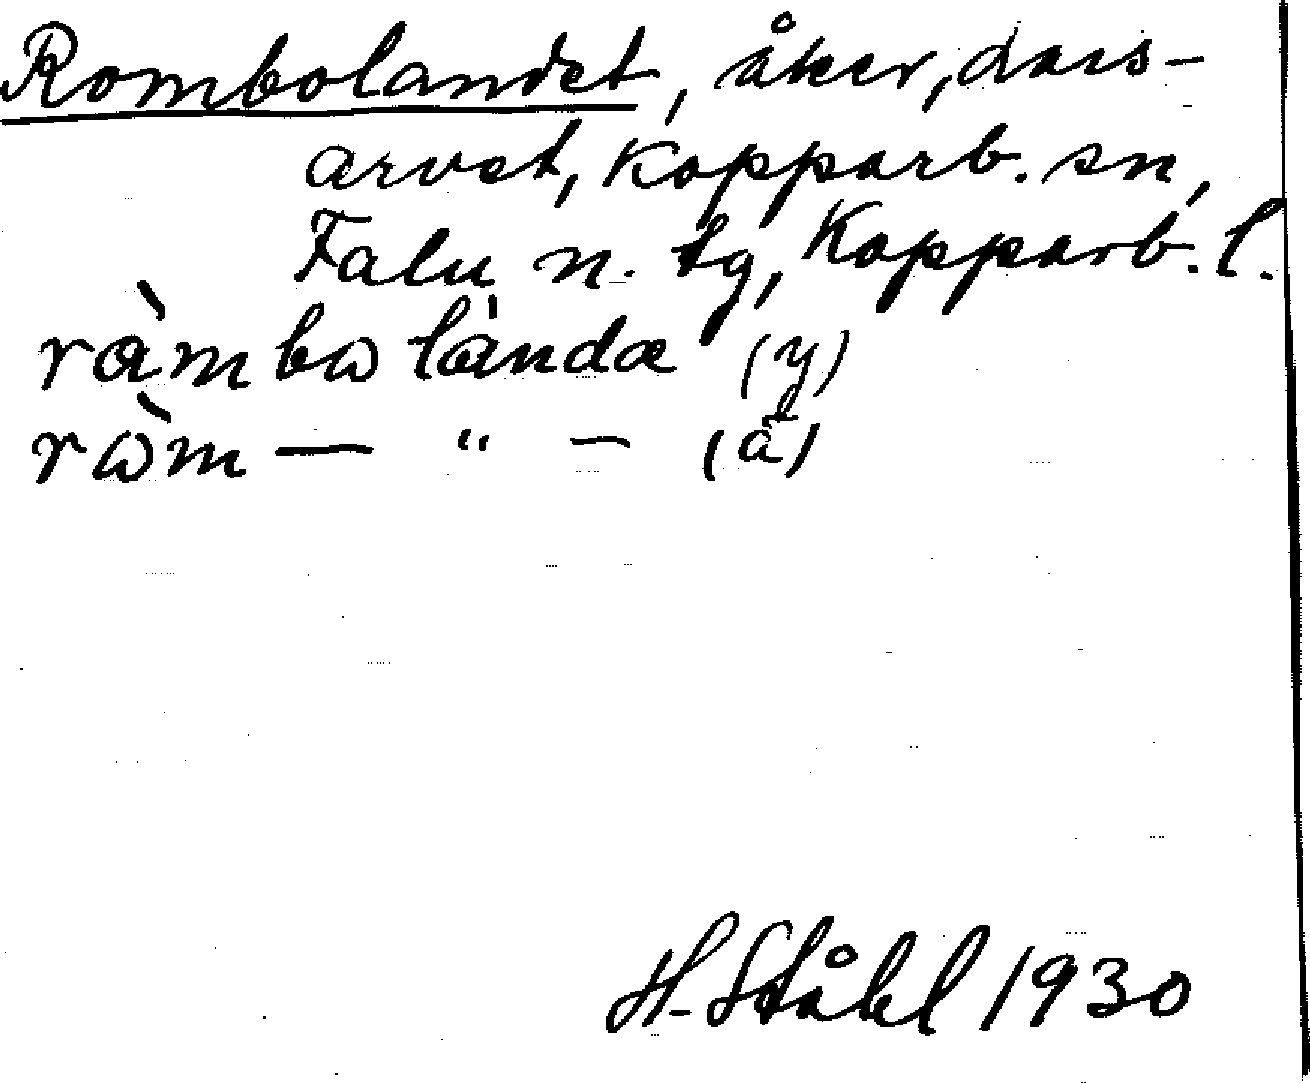 Rombolandet, åker, dars-
arvet, Kopparb. sn,
Falu n. tg, Kopparb. l.
ràmbω làndæ (y)
rὼm — " — (ä)
H. Ståhl 1930